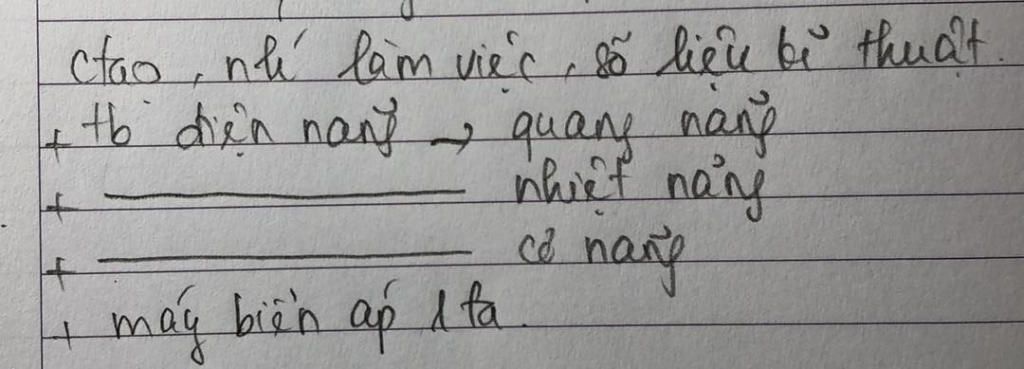 ctạo, nlí làm việc, số liệu kĩ thuật.
+ tb điện năng → quang năng
+ ———————— nhiệt năng
+ ———————— cơ năng
+ máy biến áp 1 fa.